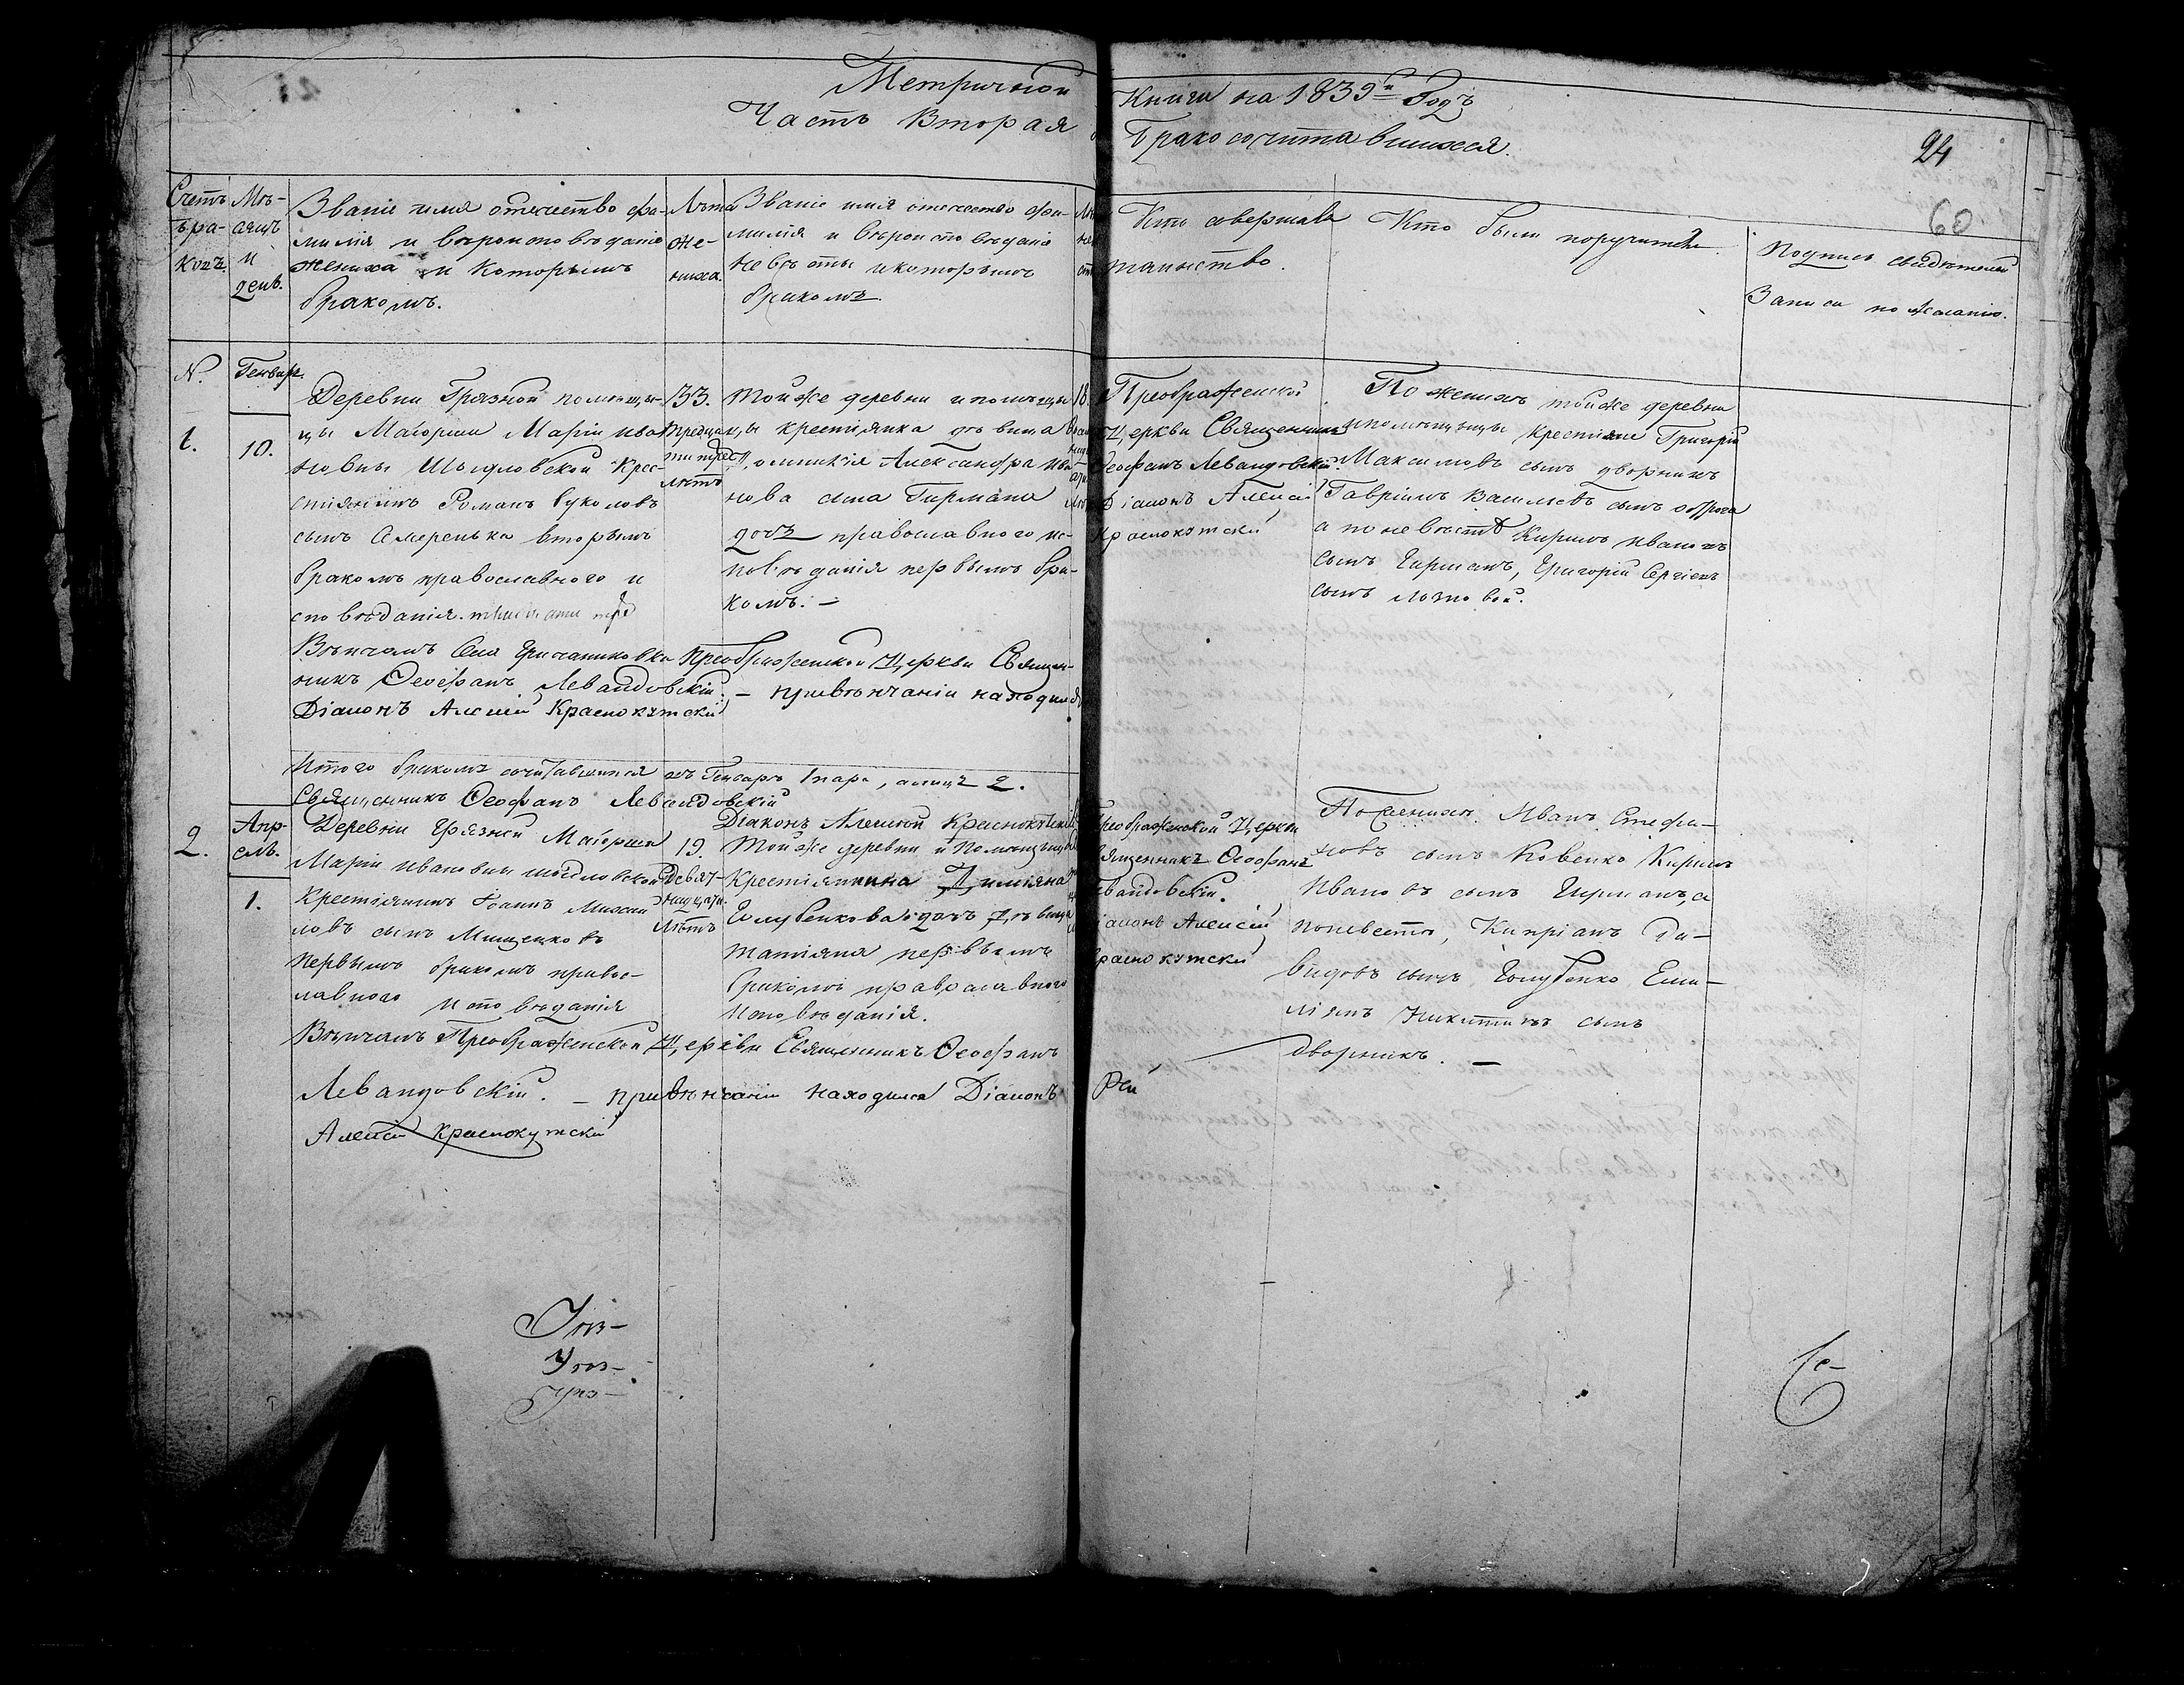 Метричной Книги на 1839й Годъ
Часть Вторая о Бракосочитавшихся.
24
60
Счетъ браковъ.
Мѣсяцъ и день.
Званіе имя отечество фамилія и вѣроисповѣданіе жениха и которымъ бракомъ.
Лѣта жениха.
Званіе имя отечество фамилія и вѣроисповѣданіе невѣсты и которымъ бракомъ.
Кто совершалъ таинство.
Кто были поручители.
Подпись свидѣтелей Записи по желанію.
N.
Генварь.
1.
10.
Деревни Грязной помѣщи-
цы Маіорши Маріи Ива-
новны Шидловской Крес-
тіянинъ Романъ Вуколовъ
сынъ Смеренька вторымъ
бракомъ православного и
сповѣданія.
33.
Тридцати три лѣтъ
Той же деревни и помѣщи
цы крестіянка дѣвица
Домникія Александра Ива
нова сына Гирмана
дочь православного ис-
повѣданія первымъ бра-
комъ. —
18.
Преображенской
Церкви Священникъ
Ѳеофанъ Левандовскій.
Діаконъ Алексій
Краснокутскій
По женихѣ той же деревни
и помѣщицы крестіяне Григорій
Максимовъ сынъ дворникъ
Гавріилъ Васильевъ сынъ
а по невѣстѣ Кирилъ Ивановъ
сынъ Гирманъ, Григорій Сергіевъ
сынъ Лозовой.
Вѣнчалъ Села Гречаниковки Преображенской Церкви Священ-
никъ Ѳеофанъ Левандовскій. — при вѣнчаніи находился
Діаконъ Алексій Краснокутскій
Итого бракомъ сочитавшихся въ Генварѣ 1 пара, а лицъ 2.
Священникъ Ѳеофанъ Левандовскій
Діаконъ Алексій Краснокутскій
2.
Апрель.
1.
Деревни Грязной Маіорши
Маріи Ивановны Шидловской
Крестіянинъ Іоаннъ Михаи
ловъ сынъ Мищенковъ
первымъ бракомъ правос-
лавного исповѣданія
19.
Девятнацати Лѣтъ
Той же деревни и Помѣщицы
Крестіянина Диміяна
Голубенкова дочь дѣвица
Татіяна первымъ
бракомъ православного
исповѣданія.
Преображенской Церкви
Священникъ Ѳеофанъ
Левандовскій.
Діаконъ Алексій
Краснокутскій
По женихѣ. Иванъ Стефа-
новъ сынъ Ковенко Кирилъ
Ивановъ сынъ Гирманъ, а
по невестѣ, Кипріанъ Да-
видовъ сынъ Голубенко Еми-
ліянъ Никитинъ сынъ
дворникъ. —
Вѣнчалъ Преображенской Церкви Священникъ Ѳеофанъ
Левандовскій. — при вѣнчаніи находился Діаконъ
Алексій Краснокутскій